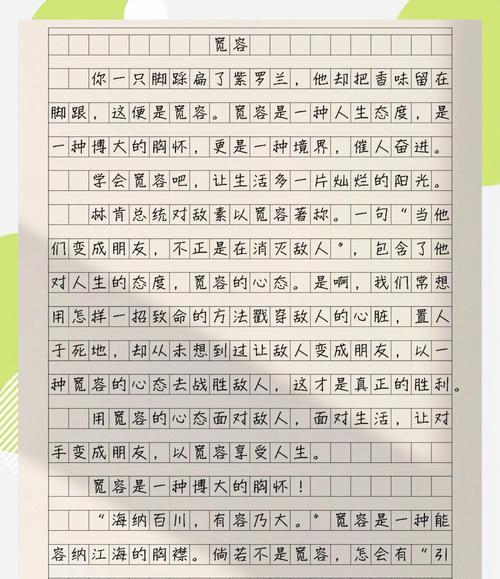 宽容
你一只脚踩扁了紫罗兰，他却把香味留在
脚跟，这便是宽容。宽容是一种人生态度，是
一种博大的胸怀，更是一种境界，催人奋进。
学会宽容吧，让生活多一片灿烂的阳光。
林肯总统对敌素以宽容著称。一句“当他
们变成朋友，不正是在消灭敌人”，包含了他
对人生的态度，宽容的心态。是啊，我们常想
用怎样一招致命的方法戳穿敌人的心脏，置人
于死地，却从未想到过让敌人变成朋友，以一
种宽容的心态去战胜敌人，这才是真正的胜利。
用宽容的心态面对敌人，面对生活，让对
手变成朋友，以宽容享受人生。
宽容是一种博大的胸怀！
“海纳百川，有容乃大。”宽容是一种能
容纳江海的胸襟。倘若不是宽容，怎会有“引